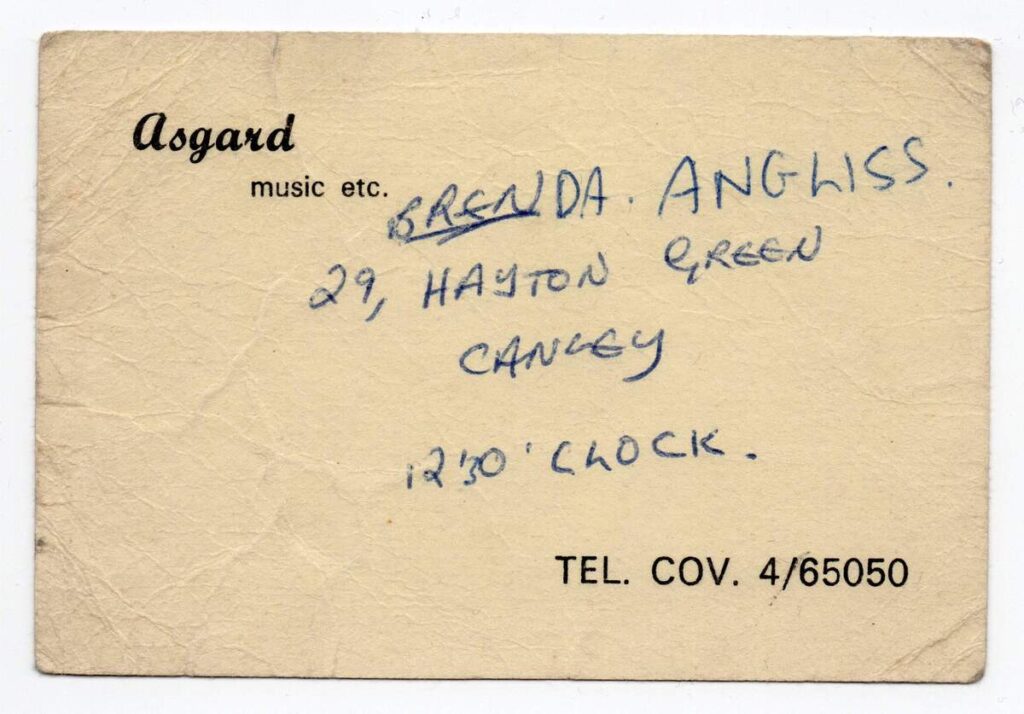 Asgard
music etc.
BRENDA. ANGLISS.
29, HAYTON GREEN
CANLEY
12'30'CLOCK.
TEL. COV. 4/65050